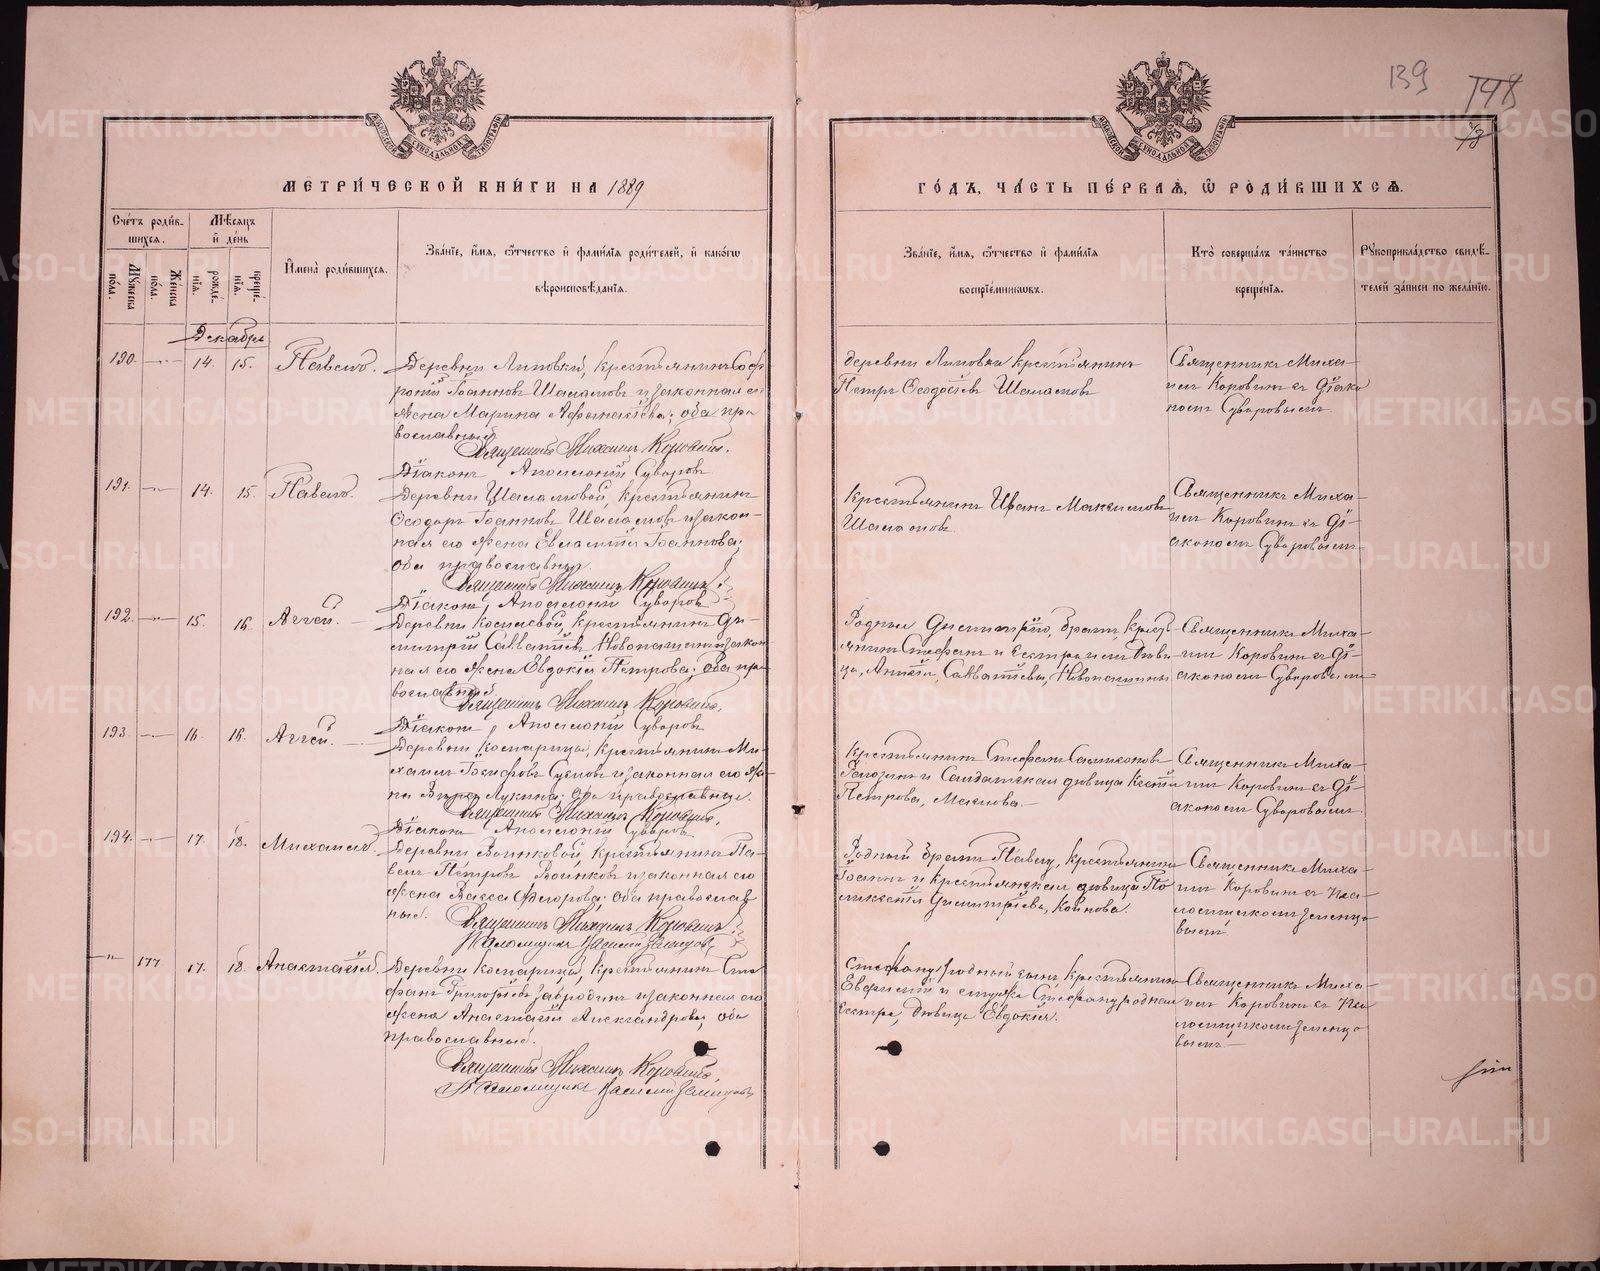 139
148
МОСКОВСКОЙ СѴНОДАЛЬНОЙ ТИПОГРАФІИ
МОСКОВСКОЙ СѴНОДАЛЬНОЙ ТИПОГРАФІИ
МЕТРИ́ЧЕСКОЙ КНИ́ГИ НА 1889
ГО́ДЪ, ЧА́СТЬ ПЕ́РВАѦ, Ѡ РОДИ́ВШИХСѦ.
Сче́тъ роди́в-
шихсѧ.
Мѣ́сѧцъ
и҆ де́нь
Мꙋжеска
по́ла.
Же́нска
по́ла.
рожде́-
нїѧ.
креще́-
нїѧ.
И҆мена̀ роди́вшихсѧ.
Зва́нїе, и҆́мѧ, ѻ҆́тчество и҆ фами́лїѧ роди́телей, и҆ како́гѡ
вѣроисповѣ́данїѧ.
Зва́нїе, и҆́мѧ, ѻ҆́тчество и҆ фами́лїѧ
воспрїе́мникѡвъ.
Кто̀ соверша́лъ та́инство
креще́нїѧ.
Рꙋкоприкла́дство свидѣ́-
телей за́писи по жела́нїю.
Декабрь
190. 14. 15. Павелъ.
Деревни Липовки, крестьянинъ Соф-
роній Іоанновъ Шаламовъ и законная его
жена Марина Афанасіева; оба пра-
вославные
Священникъ Михаилъ Коровинъ.
Діаконъ Аполлоній Суворовъ
деревни Липовки крестьянинъ
Петръ Ѳеодосіевъ Шаламовъ
Священникъ Миха-
илъ Коровинъ съ Діако
номъ Суворовымъ.
191. 14. 15. Павелъ.
Деревни Шаламовой, крестьянинъ
Ѳеодоръ Іоанновъ Шаламовъ и закон-
ная его жена Евлампія Іоаннова;
оба православные.
Священникъ Михаилъ Коровинъ.
Діаконъ, Аполлоній Суворовъ
Крестьянинъ Иванъ Максимовъ
Шаламовъ
Священникъ Миха-
илъ Коровинъ съ Ді-
акономъ Суворовымъ
192. 15. 16. Аггей.
Деревни крестьянинъ Ди-
митрій Савватіевъ и закон
ная его жена Евдокія Петрова; оба пра-
вославные.
Священникъ Михаилъ Коровинъ.
Діаконъ, Аполлоній Суворовъ
Родные Димитрію, братъ, кресть-
янинъ Стефанъ и сестра дѣви-
ца, Савватіевы,
Священникъ Миха-
илъ Коровинъ съ Ді-
акономъ Суворовымъ
193. 16. 16. Аггей.
Деревни крестьянинъ Ми-
хаилъ Іосифовъ и законная его же-
на Лукина; оба православные.
Священникъ Михаилъ Коровинъ.
Діаконъ Аполлоній Суворовъ
Крестьянинъ Стефанъ
и Солдатская дѣвица
Петрова,
Священникъ Миха-
илъ Коровинъ съ Ді-
акономъ Суворовымъ.
194. 17. 18. Михаилъ.
Деревни Воинковой, крестьянинъ Па-
велъ Петровъ Воинковъ и законная его
жена Васса Ѳеодорова; оба православ
ные.
Священникъ Михаилъ Коровинъ.
Псаломщикъ Василій Земляцовъ
Родный братъ Павлу, крестьянинъ
Іоаннъ и крестьянская дѣвица По-
ликсенія Димитріева, Коинова.
Священникъ Миха-
илъ Коровинъ съ Пса-
ломщикомъ
вымъ
177. 17. 18. Анастасія.
Деревни крестьянинъ Сте
фанъ Григорьевъ Забродинъ и законная его
жена Анастасія Александрова, оба
православные.
Священникъ Михаилъ Коровинъ
Псаломщикъ Василій
Стефану, родный сынъ, крестьянинъ
Евфимій и Стефану родная
сестра, дѣвица Евдокія.
Священникъ Миха-
илъ Коровинъ съ Пса-
ломщикомъ
вымъ
METRIKI.GASO-URAL.RU